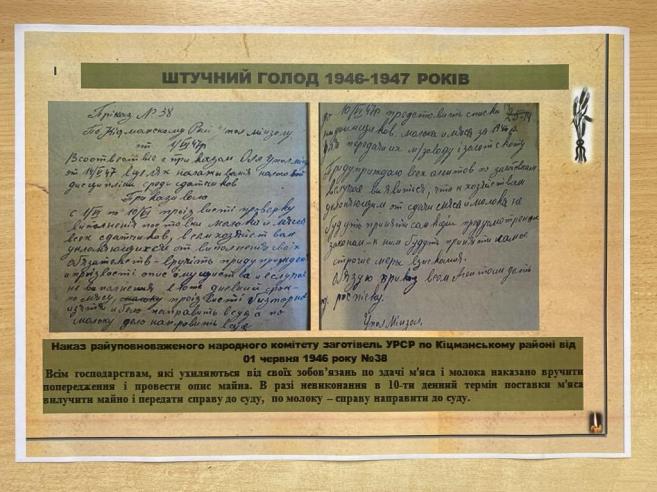 ШТУЧНИЙ ГОЛОД 1946-1947 РОКІВ
Приказ № 38
По Кіцманскому Рай упол минзагу
от 1/VI 47г
В соответствие с приказам Обл Упол мин
от 14/V 47
дисциплини среди сдатчиков
Приказиваю
с 1/VI по 10/VI произвисти проверку
виполнения поставки молока и мяса
всех сдатчиков, всем хозяйствам
уклоняющихся от виполнения своих
обязательств - вручить придупреждения
и произвисти опис имущества и в случае
не виполнения в 10ти дневний срок
по мясу, произвисти
из'ятие и дело направить в суд а по
молоку дело направить в суд
10/VI 47г предоставить списки
молока и мяса за 1947г
для передачи их м/заводу и заготскоту
Придупреждаю всех агентов по заготовкам
если виявиться, что к хозяйствам
уклоняющим от сдачи мяса и молока не
будуть приняти санкции предусмотренни
законам - к ним будуть приняти самие
строгие мери взискания.
Обязую приказ всем Агентам дать
под росписку.
Упол Минзаг.
Наказ райуповноваженого народного комітету заготівель УРСР по Кіцманському районі від
01 червня 1946 року №38
Всім господарствам, які ухиляються від своїх зобов'язань по здачі м'яса і молока наказано вручити
попередження і провести опис майна. В разі невиконання в 10-ти денний термін поставки м'яса
вилучити майно і передати справу до суду, по молоку – справу направити до суду.